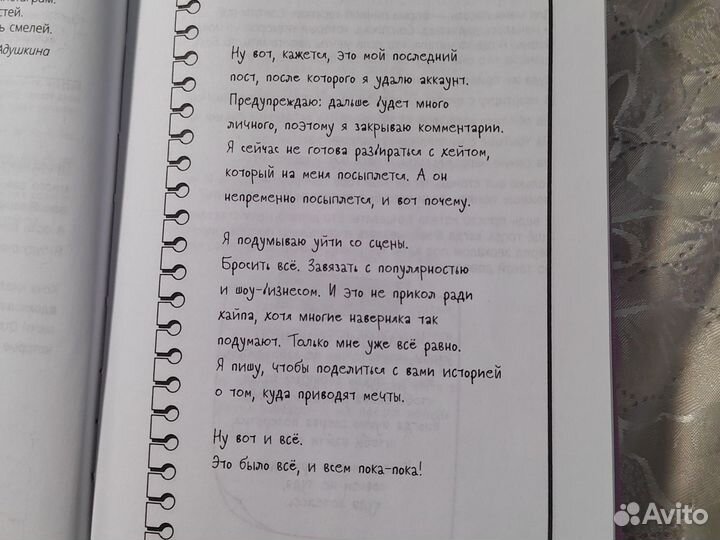 стей.
ь смелей.
Адушкина
Ну вот, кажется, это мой последний
пост, после которого я удалю аккаунт.
Предупреждаю: дальше будет много
личного, поэтому я закрываю комментарии.
Я сейчас не готова разбираться с хейтом,
который на меня посыплется. А он
непременно посыплется, и вот почему.
Я подумываю уйти со сцены.
Бросить всё. Завязать с популярностью
и шоу-бизнесом. И это не прикол ради
хайпа, хотя многие наверняка так
подумают. Только мне уже всё равно.
Я пишу, чтобы поделиться с вами историей
о том, куда приводят мечты.
Ну вот и всё.
Это было всё, и всем пока-пока!
Avito